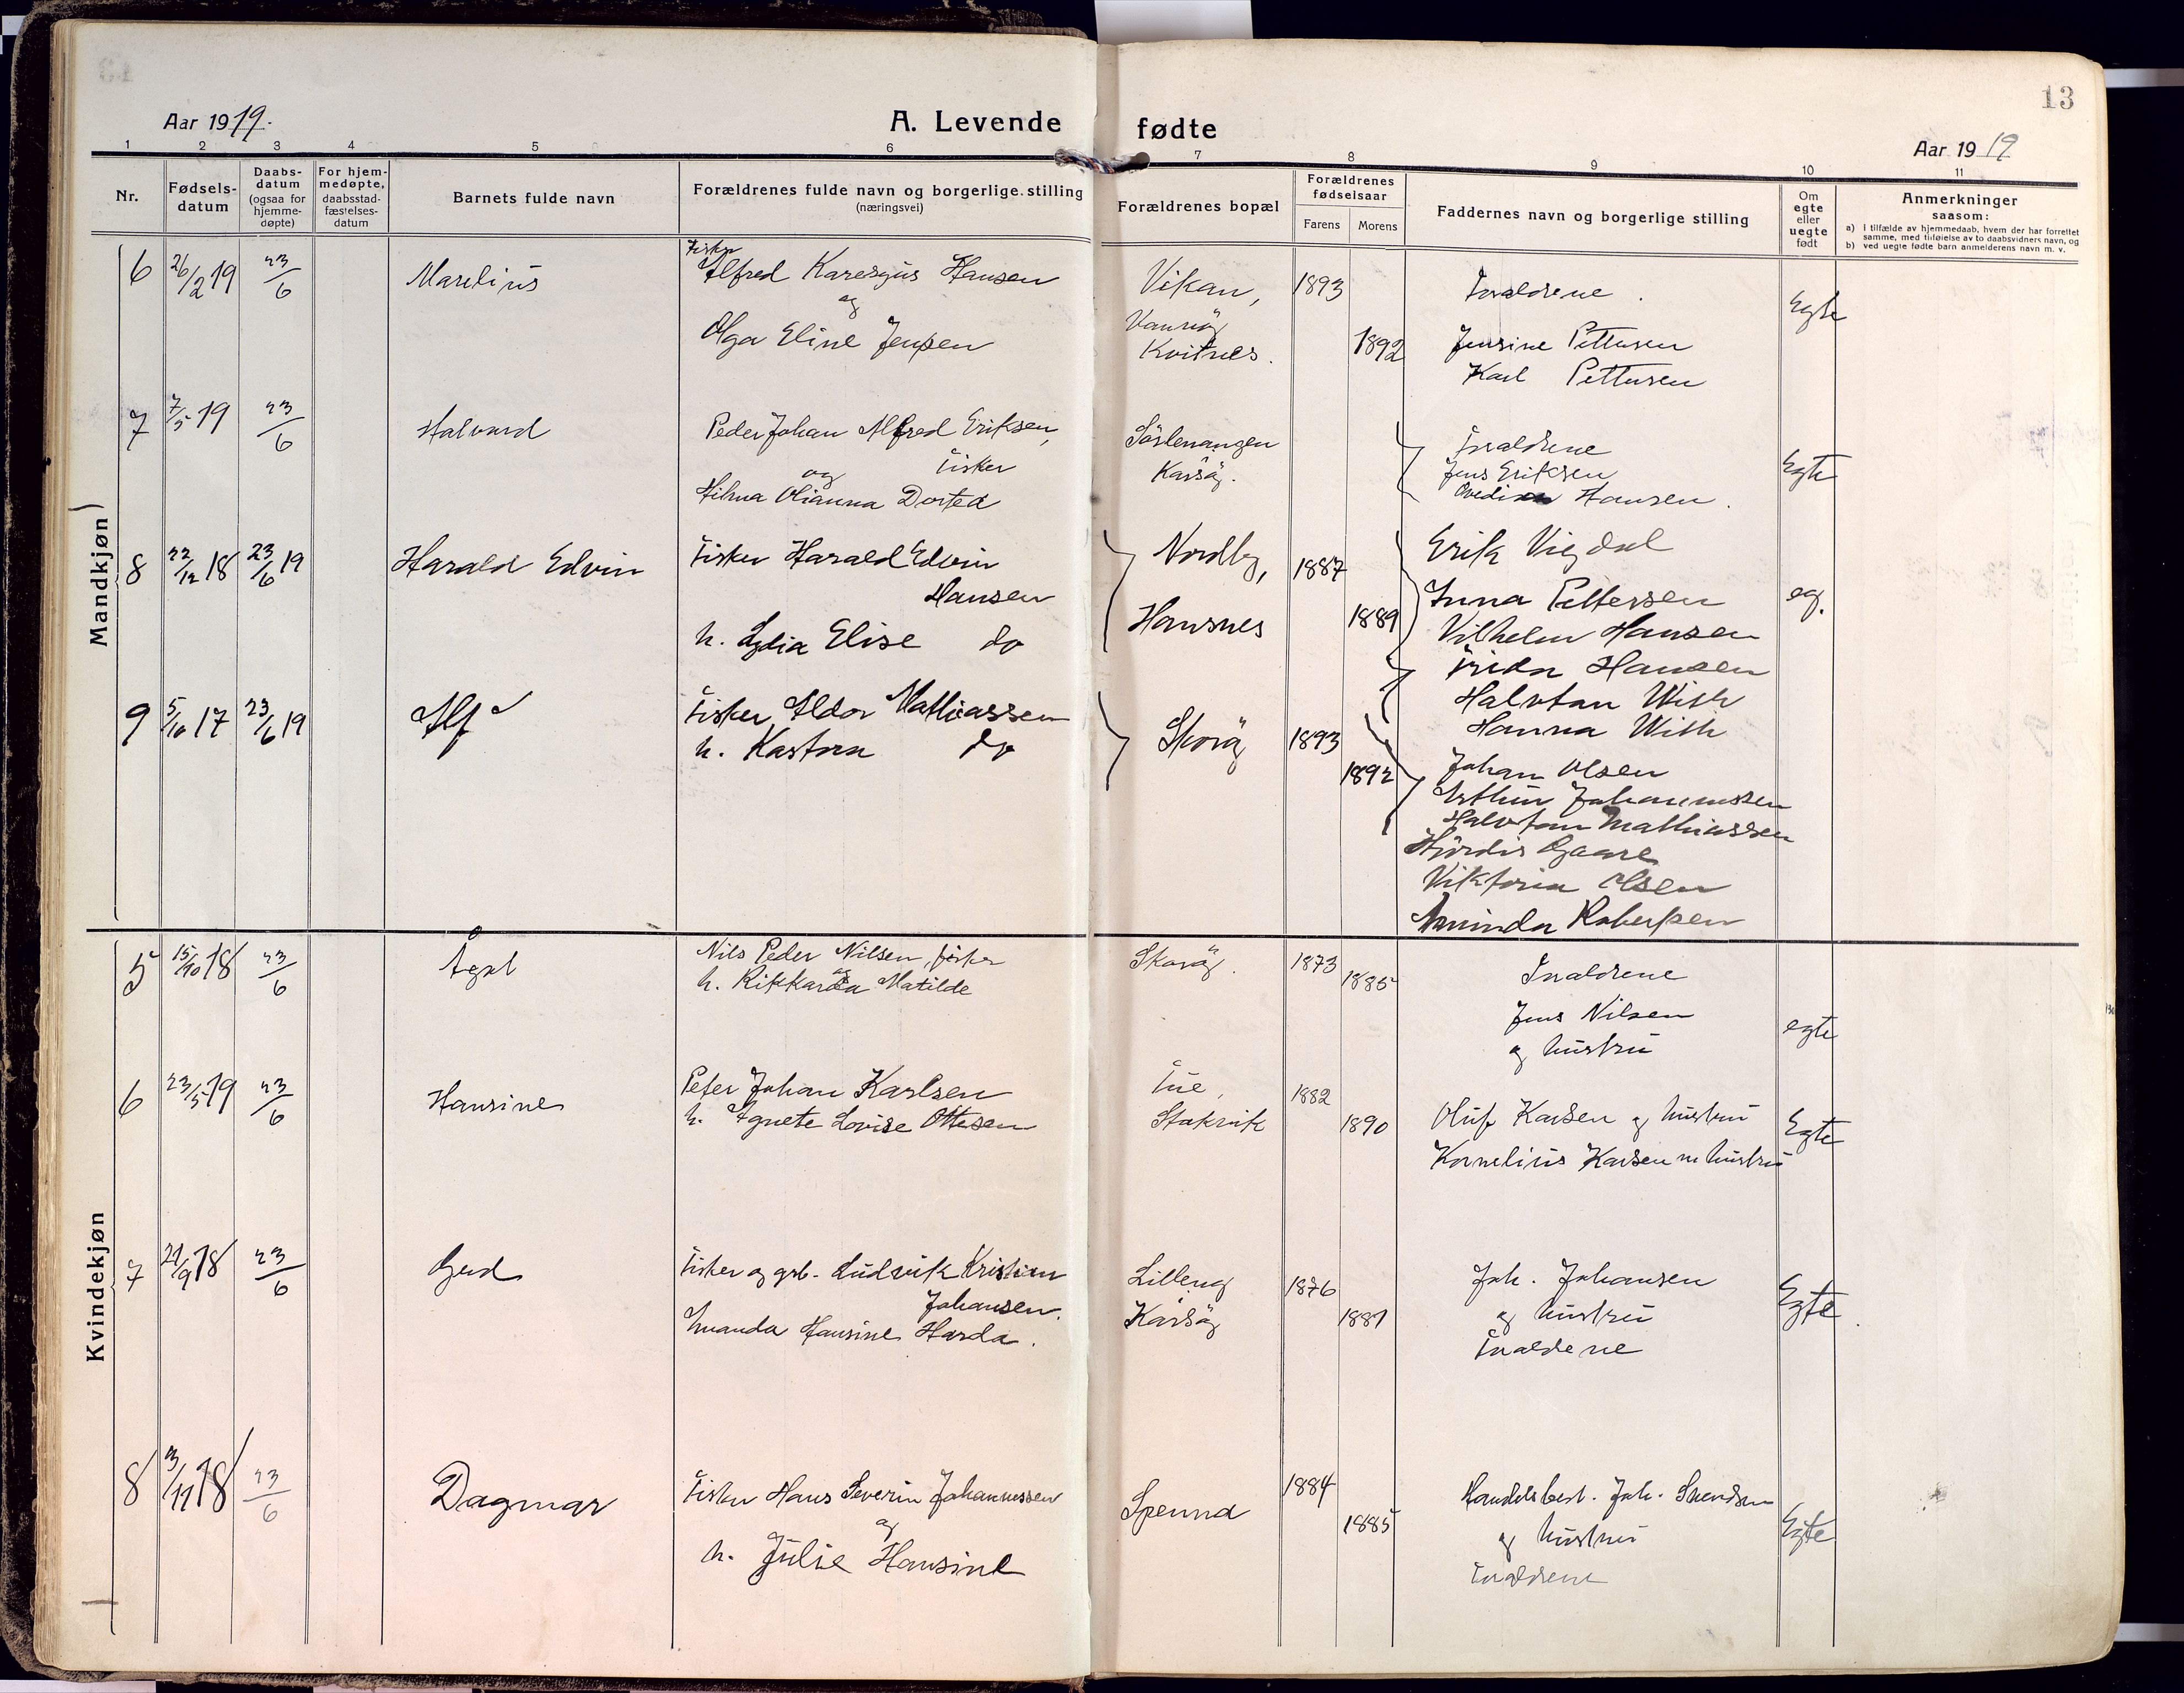 13
Aar 1919.
A. Levende fødte
Aar 1919
1 2 3 4 5 6 7 8 9 10 11
Nr.
Fødsels-
datum
Daabs-
datum
(ogsaa for
hjemme-
døpte)
For hjem-
medøpte,
daabsstad-
fæstelses-
datum
Barnets fulde navn
Forældrenes fulde navn og borgerlige stilling
(næringsvei)
Forældrenes bopæl
Forældrenes
fødselsaar
Farens
Morens
Faddernes navn og borgerlige stilling
Om
egte
eller
uegte
født
Anmerkninger
saasom:
a) I tilfælde av hjemmedaab, hvem der har forrettet
samme, med tilføielse av to daabsvidners navn, og
b) ved uegte fødte barn anmelderens navn m. v.
Mandkjøn
6 26/2 19 23/6 Marelius
Fisker
Alfred Hansen
og
Olga Eline Jensen
Vikan,
Vannøy
Kvitnes.
1893
1892
Forældrene.
Jensine Pettersen
Karl Pettersen
Egte
7 7/5 19 23/6 Halvard
Peder Johan Alfred Eriksen,
Fisker
og
Hilma Olianna Dorted
Sörlenangen
Karlsøy.
Forældrene
Jens Eriksen
Hansen.
Egte
8 22/12 18 23/6 19 Harald Edvin
Fisker Harald Edvin
Hansen
h. Lydia Elise do
Nordby,
Hansnes
1887
1889
Erik Vigdal
Anna Pettersen
Vilhelm Hansen
Frida Hansen
Halvfan With
Hanna With
eg.
9 5/10 17 23/6 19 Alf
Fisker Aldor Mathiassen
h. Kastora do
Skorøy
1893
1892
Johan Olsen
Arthur Johannessen
Halvfan Mathiassen
Hjørdis Gaare
Viktoria Olsen
Aminda Robertsen
Kvindekjøn
5 15/10 18 23/6 Ågot
Nils Peder Nilsen, fisker
og
h. Rikkarda Matilde
Skorøy.
1873
1885
Forældrene
Jens Nilsen
og hustru
egte
6 23/5 19 23/6 Hansine
Peter Johan Karlsen
h. Agnete Lovise Ottesen
Stakvik
1882
1890
Oluf Karlsen og hustru
Kornelius Karlsen m hustru
Egte
7 21/9 18 23/6 Gerd
Fisker og grb. Ludvik Kristian
Johansen.
Amanda Hansine Harda.
Lilleng
Karlsøy
1876
1881
Joh. Johansen
og hustru
Forældrene
Egte.
8 3/11 18 23/6 Dagmar
Fisker Hans Severin Johannessen
og
h. Julie Hansine
Spenna
1884
1885
Handelsbest. Joh. Svendsen
og hustru
Forældrene
Egte